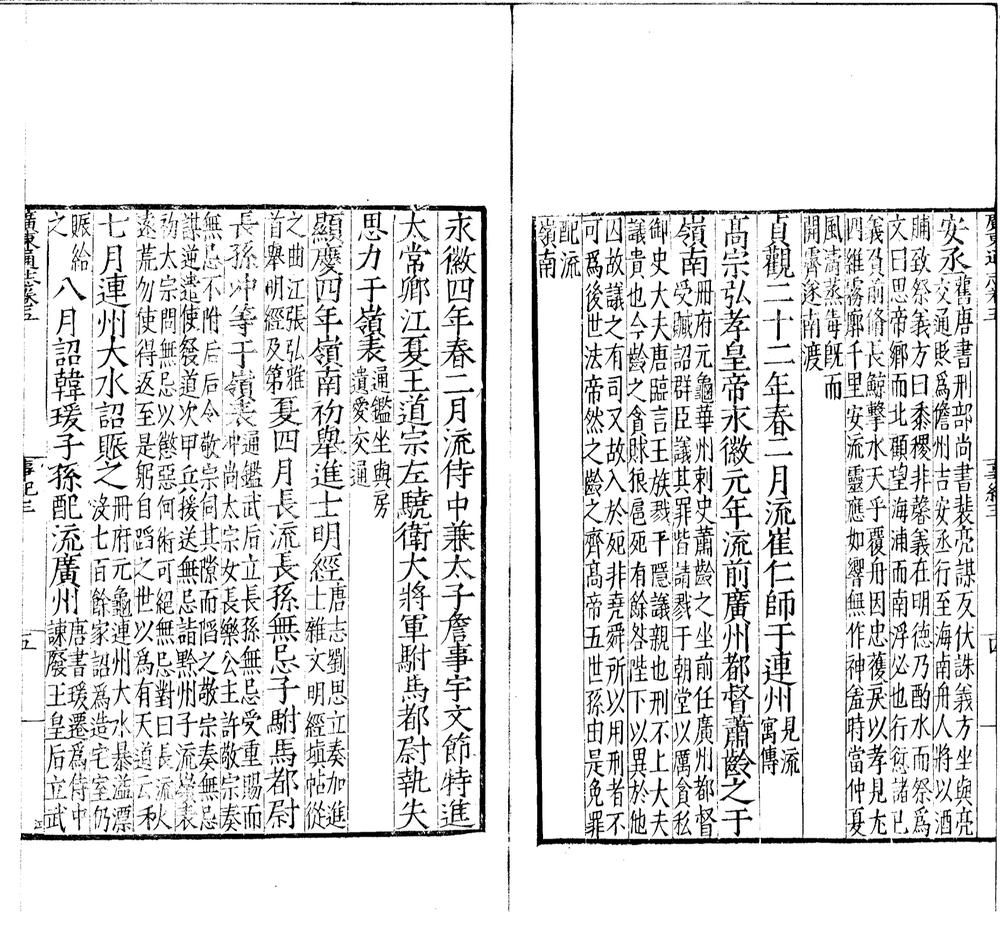 安丞
舊唐書刑部尚書裴亮謀反伏誅義方坐與亮
交通貶爲儋州吉安丞行至海南舟人將以酒
脯致祭義方曰黍稷非馨義在明德乃酌水而祭爲
文曰思帝鄉而北顧望海浦而南浮必也行愆諸已
義負前脩長鯨擊水天乎覆舟因忠獲戾以孝見尤
四維霧廓千里安流靈應如響無作神羞時當仲夏
風濤蒸毒既而
開霽遂南渡
貞觀二十二年春二月流崔仁師于連州
見流
寓傳
高宗弘孝皇帝永徽元年流前廣州都督蕭齡之于
嶺南
冊府元龜華州刺史蕭齡之坐前任廣州都督
受贓詔群臣議其罪皆請戮于朝堂以厲貪私
御史大夫唐臨言王族戮于隱議親也刑不上大夫
議貴也今齡之貪賕狼扈死有餘咎陛下以異於他
囚故議之有司又故入於死非堯舜所以用刑者不
可爲後世法帝然之齡之齊高帝五世孫由是免罪
配流
嶺南
永徽四年春二月流侍中兼太子詹事宇文節特進
太常卿江夏王道宗左驍衛大將軍駙馬都尉執失
思力于嶺表
通鑑坐與房
遺愛交通
顯慶四年嶺南初舉進士明經
唐志劉思立奏加進
士雜文明經填帖從
之曲江張弘雅
首舉明經及第
夏四月長流長孫無忌子駙馬都尉
長孫冲等于嶺表
通鑑武后立長孫無忌受重賜而
冲尚太宗女長樂公主許敬宗奏
無忌不附后后令敬宗伺其隙而陷之敬宗奏無忌
謀逆遣使發道次甲兵援送無忌詣黔州子流嶺表
初太宗問無忌以懲惡何術可絕無忌對曰長流秋
遠荒勿使得返至是躬自蹈之世以爲有天道云
七月連州大水詔賑之
冊府元龜連州大水暴溢漂
沒七百餘家詔爲造宅室仍
賑給
之
八月詔韓瑗子孫配流廣州
唐書瑗遷爲侍中
諫廢王皇后立武
廣東通志卷五
事紀三
五